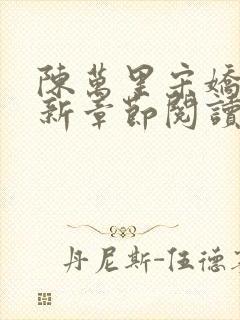 陳萬里宋嬌
新章節閱讀
丹尼斯-伍德